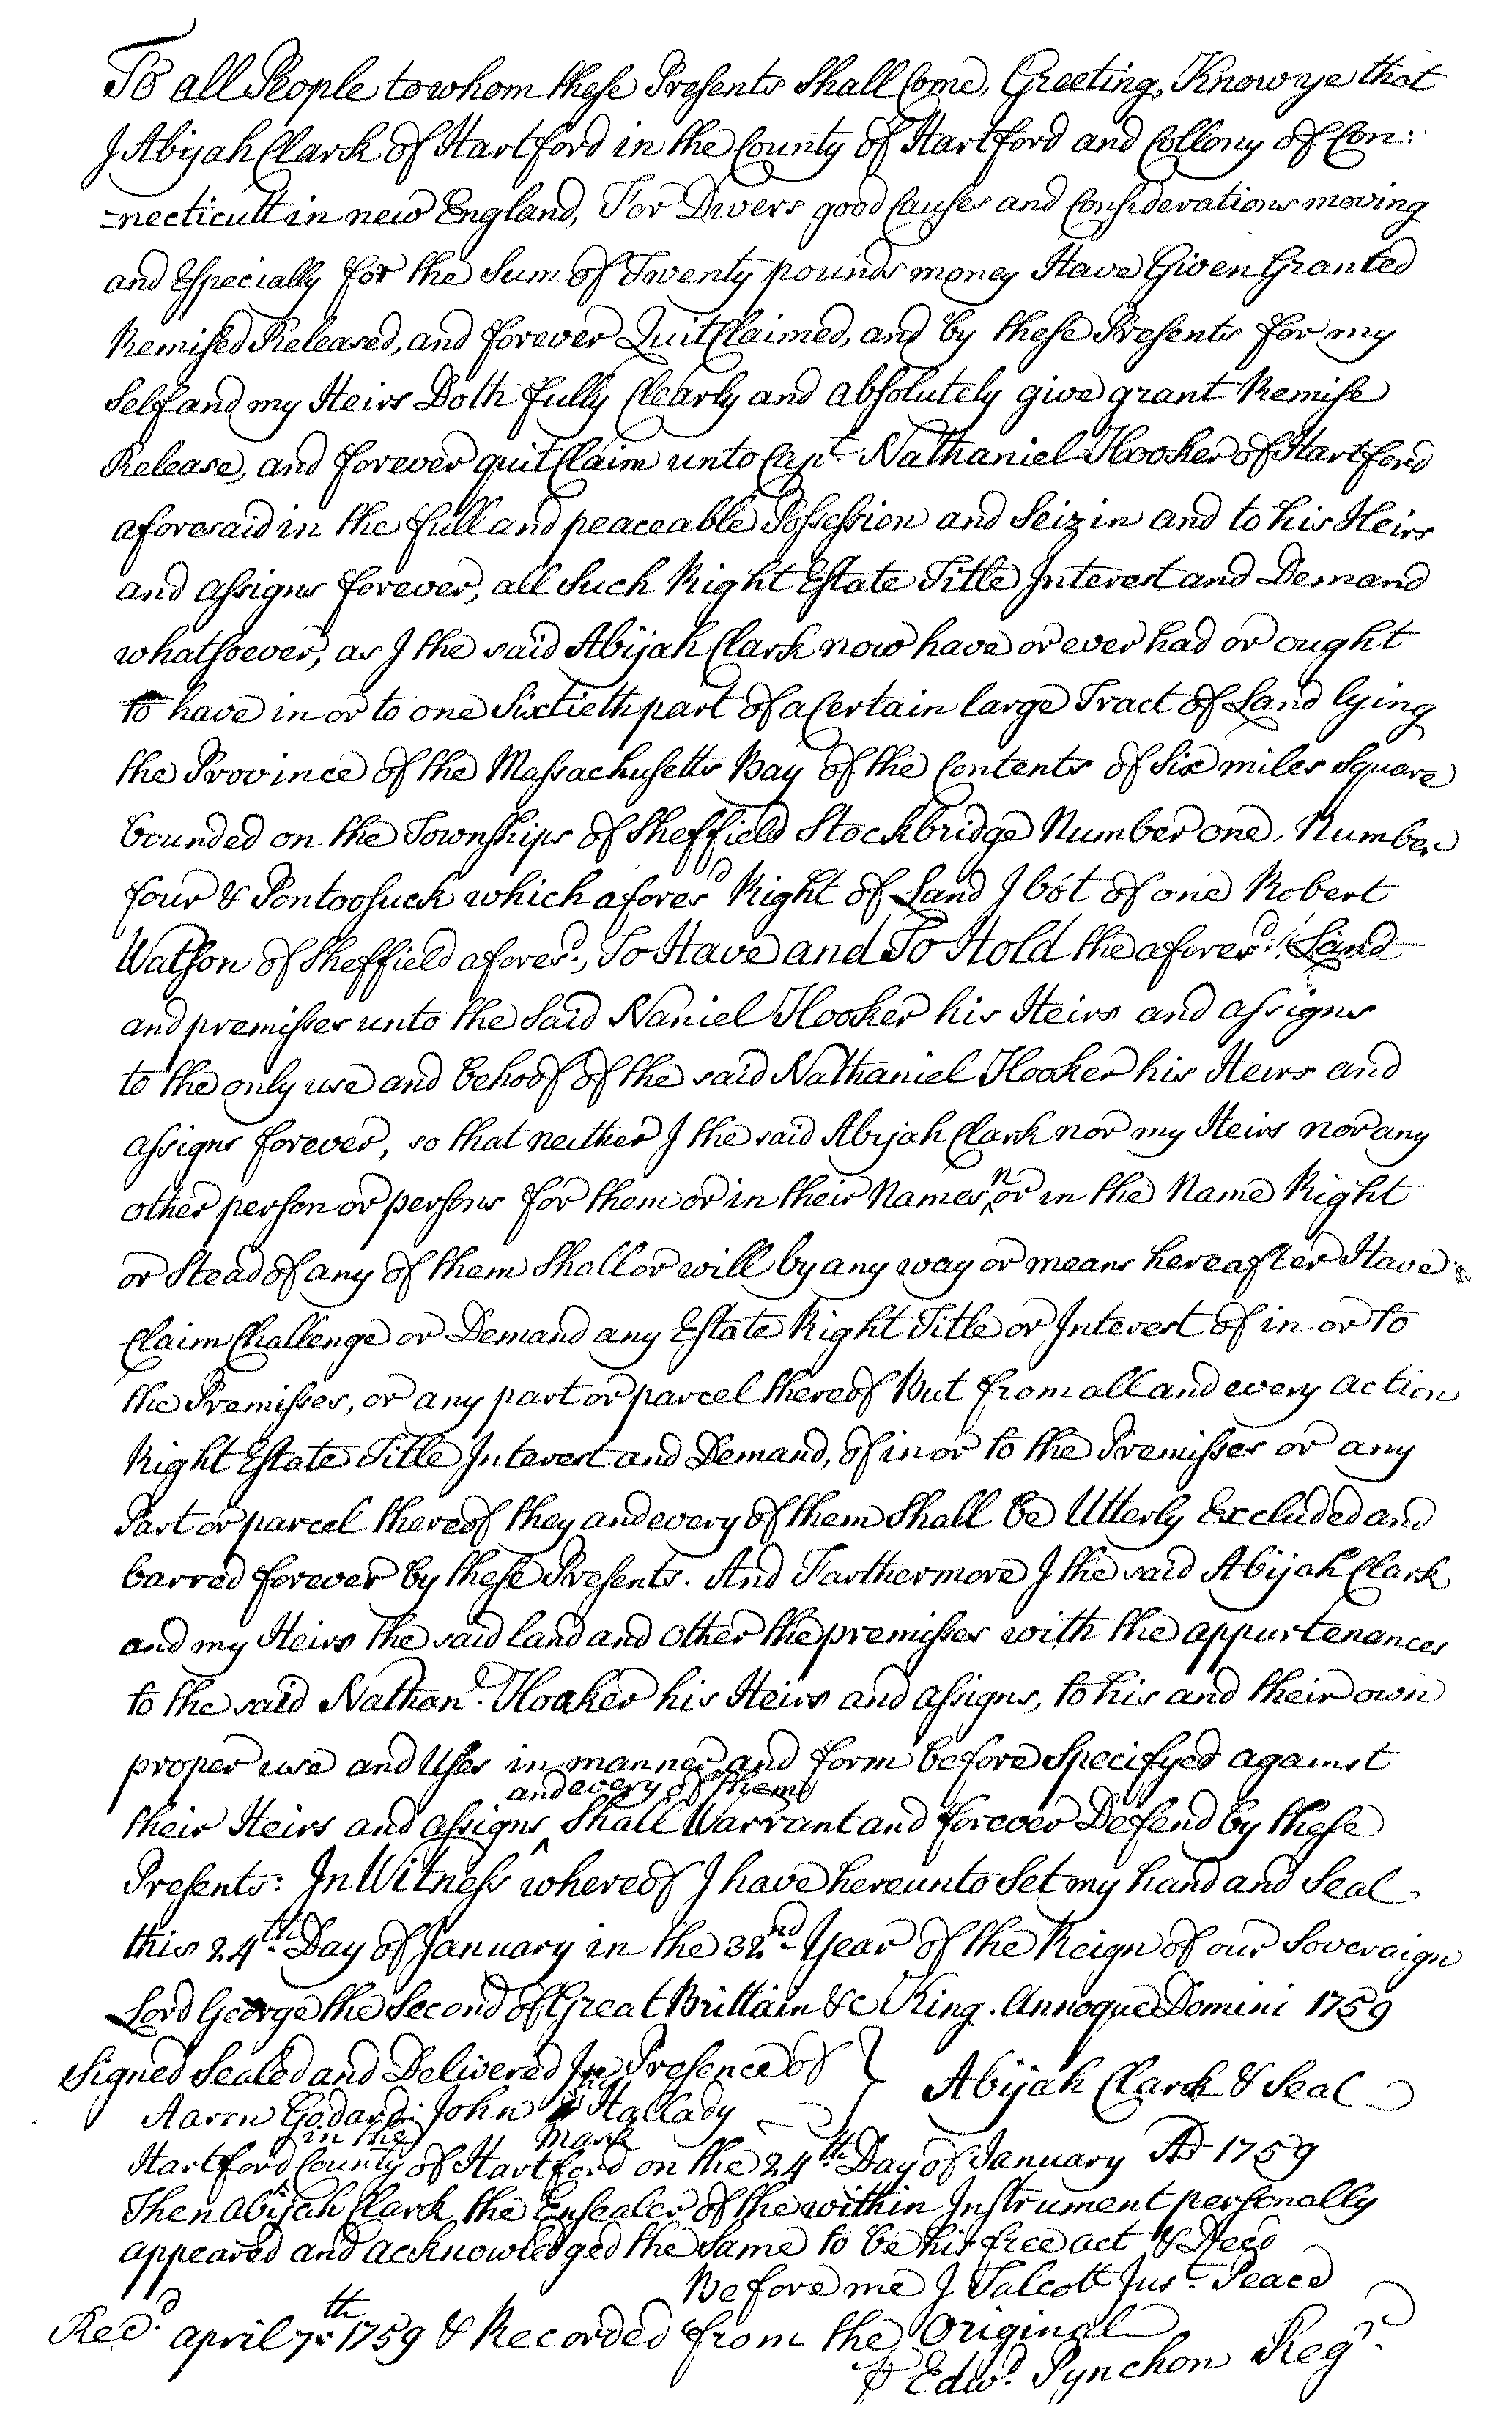 To all People to whom these Presents Shall Come, Greeting, Know ye that
I Abijah Clark of Hartford in the County of Hartford and Collony of Con:
=necticutt in new England, For Divers good Causes and Considerations moving
and Especially for the Sum of Twenty pounds money Have Given Granted
Remised Released, and forever Quit Claimed, and by these Presents for my
Self and my Heirs Doth fully Clearly and absolutely give grant Remise
Release, and forever quit Claim unto Capt. Nathaniel Hooker of Hartford
aforesaid in the full and peaceable Possession and Seizin and to his Heirs
and assigns forever, all Such Right Estate Title Interest and Demand
whatsoever, as I the said Abijah Clark now have or ever had or ought
to have in or to one Sixtieth part of a Certain large Tract of Land lying
the Province of the Massachusetts Bay of the Contents of Six miles Square
bounded on the Townships of Sheffield Stockbridge Number one, Number
four & Pontoosuck which afores.d Right of Land I bot of one Robert
Watson of Sheffield afores.d, To Have and To Hold the afores.d Land
and premisses unto the Said Naniel Hooker his Heirs and assigns
to the only use and behoof of the said Nathaniel Hooker his Heirs and
assigns forever, so that neither I the said Abijah Clark nor my Heirs nor any
other person or persons for them or in their Names, nor in the Name Right
or Stead of any of them Shall or will by any way or means hereafter Have
Claim Challenge or Demand any Estate Right Title or Interest of in or to
the Premisses, or any part or parcel thereof But from all and every action
Right Estate Title Interest and Demand, of in or to the Premisses or any
Part or parcel thereof they and every of them Shall be Utterly Excluded and
barred forever by these Presents. And Farthermore I the said Abijah Clark
and my Heirs the said land and other the premisses with the appurtenances
to the said Nathan.l Hooker his Heirs and assigns, to his and their own
proper use and Uses in manner and form before Specifyed against
their Heirs and assigns and every of them Shall Warrant and forever Defend by these
Presents: In Witness whereof I have hereunto Set my hand and Seal
this 24th Day of January in the 32nd Year of the Reign of our Soveraign
Lord George the Second of Great Brittain &c King. Annoque Domini 1759
Signed Sealed and Delivered In Presence of } Abijah Clark & Seal
Aaron Godard: John his Hallady
mark
Hartford in the County of Hartford on the 24th Day of January AD 1759
Then Abijah Clark the Ensealer of the within Instrument personally
appeared and acknowledged the Same to be his free act & Deed
Before me J Talcott Just. Peace
Rec.d april 7th 1759 & Recorded from the Original
⅌ Edw.d Pynchon Reg.r